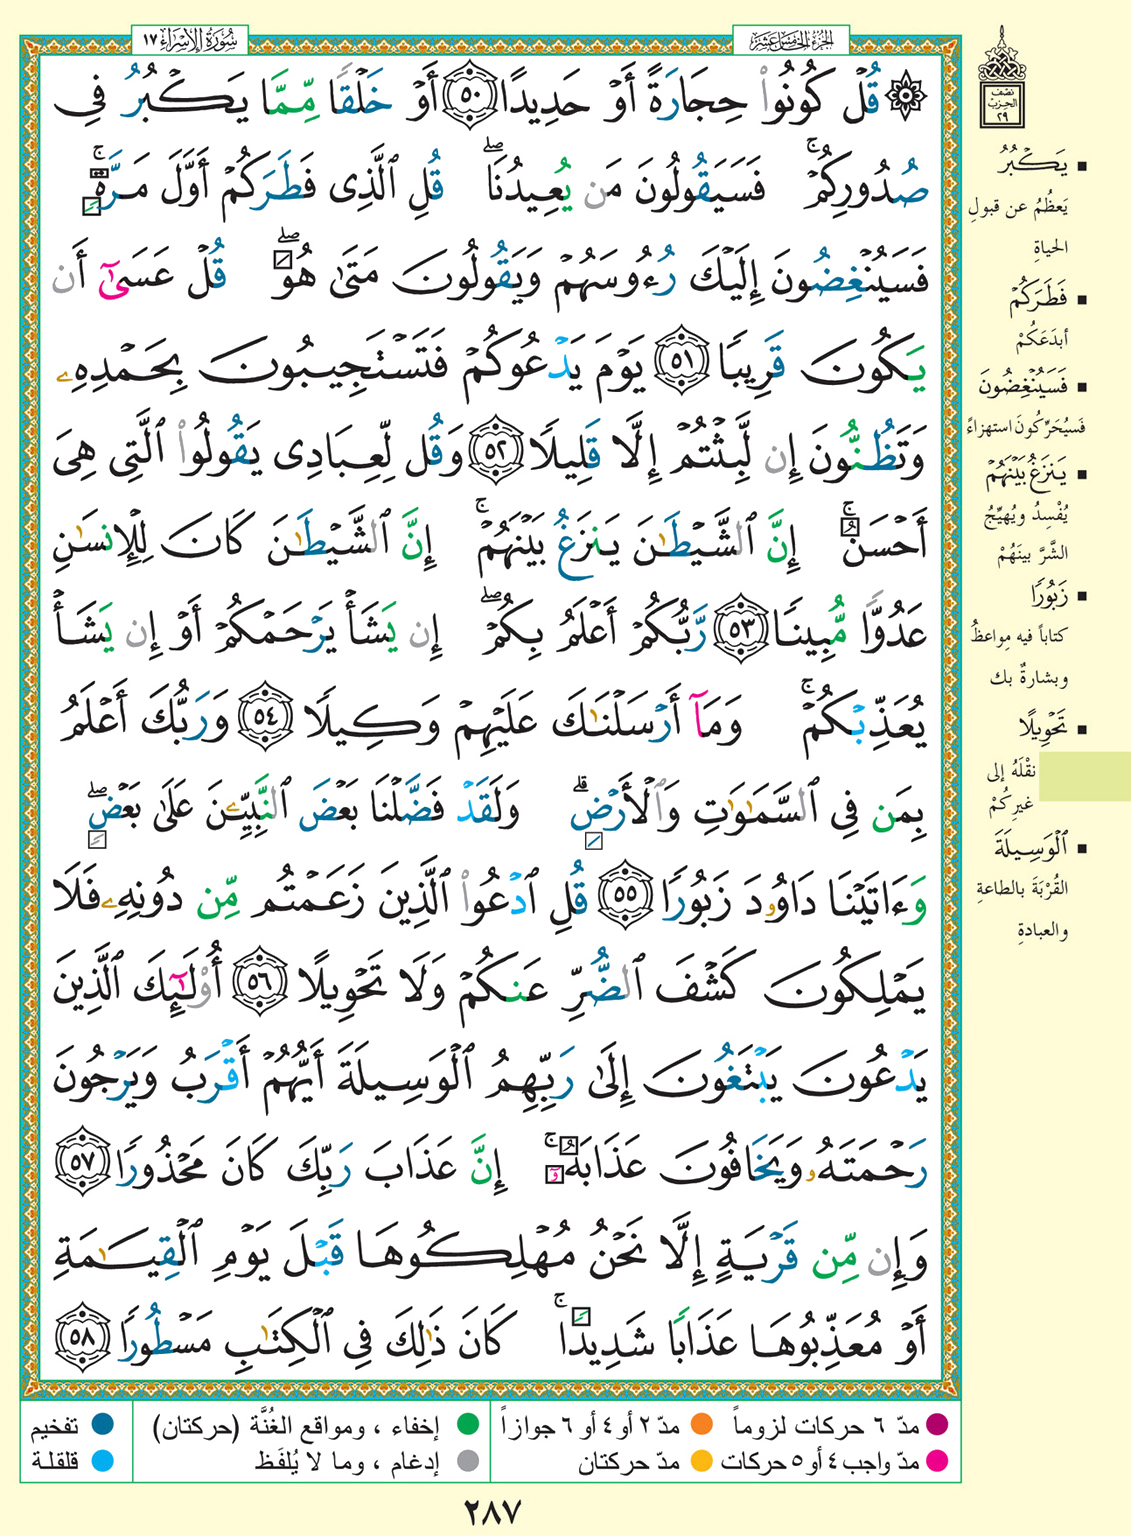 سُورَةُ الإِسْرَاء ١٧
الجُزْءُ الخَامِسَ عَشَرَ
۞ قُلْ كُونُوا۟ حِجَارَةً أَوْ حَدِيدًا ٥٠ أَوْ خَلْقًا مِّمَّا يَكْبُرُ فِى
صُدُورِكُمْ ۚ فَسَيَقُولُونَ مَن يُعِيدُنَا ۖ قُلِ ٱلَّذِى فَطَرَكُمْ أَوَّلَ مَرَّةٍ ۚ
فَسَيُنْغِضُونَ إِلَيْكَ رُءُوسَهُمْ وَيَقُولُونَ مَتَىٰ هُوَ ۖ قُلْ عَسَىٰٓ أَن
يَكُونَ قَرِيبًا ٥١ يَوْمَ يَدْعُوكُمْ فَتَسْتَجِيبُونَ بِحَمْدِهِۦ
وَتَظُنُّونَ إِن لَّبِثْتُمْ إِلَّا قَلِيلًا ٥٢ وَقُل لِّعِبَادِى يَقُولُوا۟ ٱلَّتِى هِىَ
أَحْسَنُ ۚ إِنَّ ٱلشَّيْطَٰنَ يَنزَغُ بَيْنَهُمْ ۚ إِنَّ ٱلشَّيْطَٰنَ كَانَ لِلْإِنسَٰنِ
عَدُوًّا مُّبِينًا ٥٣ رَّبُّكُمْ أَعْلَمُ بِكُمْ ۖ إِن يَشَأْ يَرْحَمْكُمْ أَوْ إِن يَشَأْ
يُعَذِّبْكُمْ ۚ وَمَآ أَرْسَلْنَٰكَ عَلَيْهِمْ وَكِيلًا ٥٤ وَرَبُّكَ أَعْلَمُ
بِمَن فِى ٱلسَّمَٰوَٰتِ وَٱلْأَرْضِ ۗ وَلَقَدْ فَضَّلْنَا بَعْضَ ٱلنَّبِيِّـۧنَ عَلَىٰ بَعْضٍ ۖ
وَءَاتَيْنَا دَاوُۥدَ زَبُورًا ٥٥ قُلِ ٱدْعُوا۟ ٱلَّذِينَ زَعَمْتُم مِّن دُونِهِۦ فَلَا
يَمْلِكُونَ كَشْفَ ٱلضُّرِّ عَنكُمْ وَلَا تَحْوِيلًا ٥٦ أُو۟لَٰٓئِكَ ٱلَّذِينَ
يَدْعُونَ يَبْتَغُونَ إِلَىٰ رَبِّهِمُ ٱلْوَسِيلَةَ أَيُّهُمْ أَقْرَبُ وَيَرْجُونَ
رَحْمَتَهُۥ وَيَخَافُونَ عَذَابَهُۥٓ ۚ إِنَّ عَذَابَ رَبِّكَ كَانَ مَحْذُورًا ٥٧
وَإِن مِّن قَرْيَةٍ إِلَّا نَحْنُ مُهْلِكُوهَا قَبْلَ يَوْمِ ٱلْقِيَٰمَةِ
أَوْ مُعَذِّبُوهَا عَذَابًا شَدِيدًا ۚ كَانَ ذَٰلِكَ فِى ٱلْكِتَٰبِ مَسْطُورًا ٥٨
نصف
الحزب
٢٩
▪ يَكْبُرُ
يَعظُمُ عن قبولِ
الحياةِ
▪ فَطَرَكُمْ
أبدَعَكُمْ
▪ فَسَيُنْغِضُونَ
فَسيُحَرِّكُونَ استهزاءً
▪ يَنزَغُ بَيْنَهُمْ
يُفْسِدُ ويُهيِّجُ
الشَّرَّ بينَهُمْ
▪ زَبُورًا
كتاباً فيه مواعظُ
وبشارةٌ بك
▪ تَحْوِيلًا
نقْلَهُ إلى
غيرِكُمْ
▪ ٱلْوَسِيلَةَ
القُرْبَةَ بالطاعةِ
والعبادةِ
مدّ ٦ حركات لزوماً مدّ ٢ أو ٤ أو ٦ جوازاً إخفاء ، ومواقع الغُنَّة (حركتان) تفخيم
مدّ واجب ٤ أو ٥ حركات مدّ حركتان إدغام ، وما لا يُلفَظ قلقلة
٢٨٧